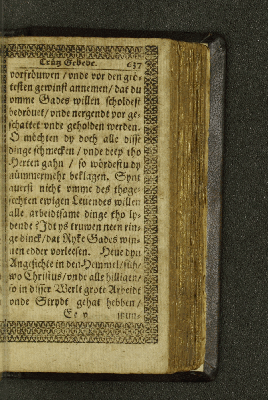 Crütz Gebede. 637
vorfröuwen / vnde vor den grö-
testen gewinst annemen / dat du
vmme Gades willen scholdest
bedröuet / vnde nergendt vor ge-
schattet vnde geholden werden.
O möchten dy doch alle disse
dinge schmecken / vnde deep tho
Herten gahn / so wördestu dy
nümmermehr beklagen. Synt
nuerst nicht vmme des
ichten ewigen Leuendes willen
alle arbeidtsame dinge tho ly-
dende? Idt ys truwen neen rin-
ge dinck / dat Ryke Gades win-
nen edder vorleesen. Heue dyn
Angesichte in den Hemmel / süh /
wo Christus / vnde alle hilligen /
so in disser Werlt grote Arbeide
vnde Strydt gehat hebben /
Ee v